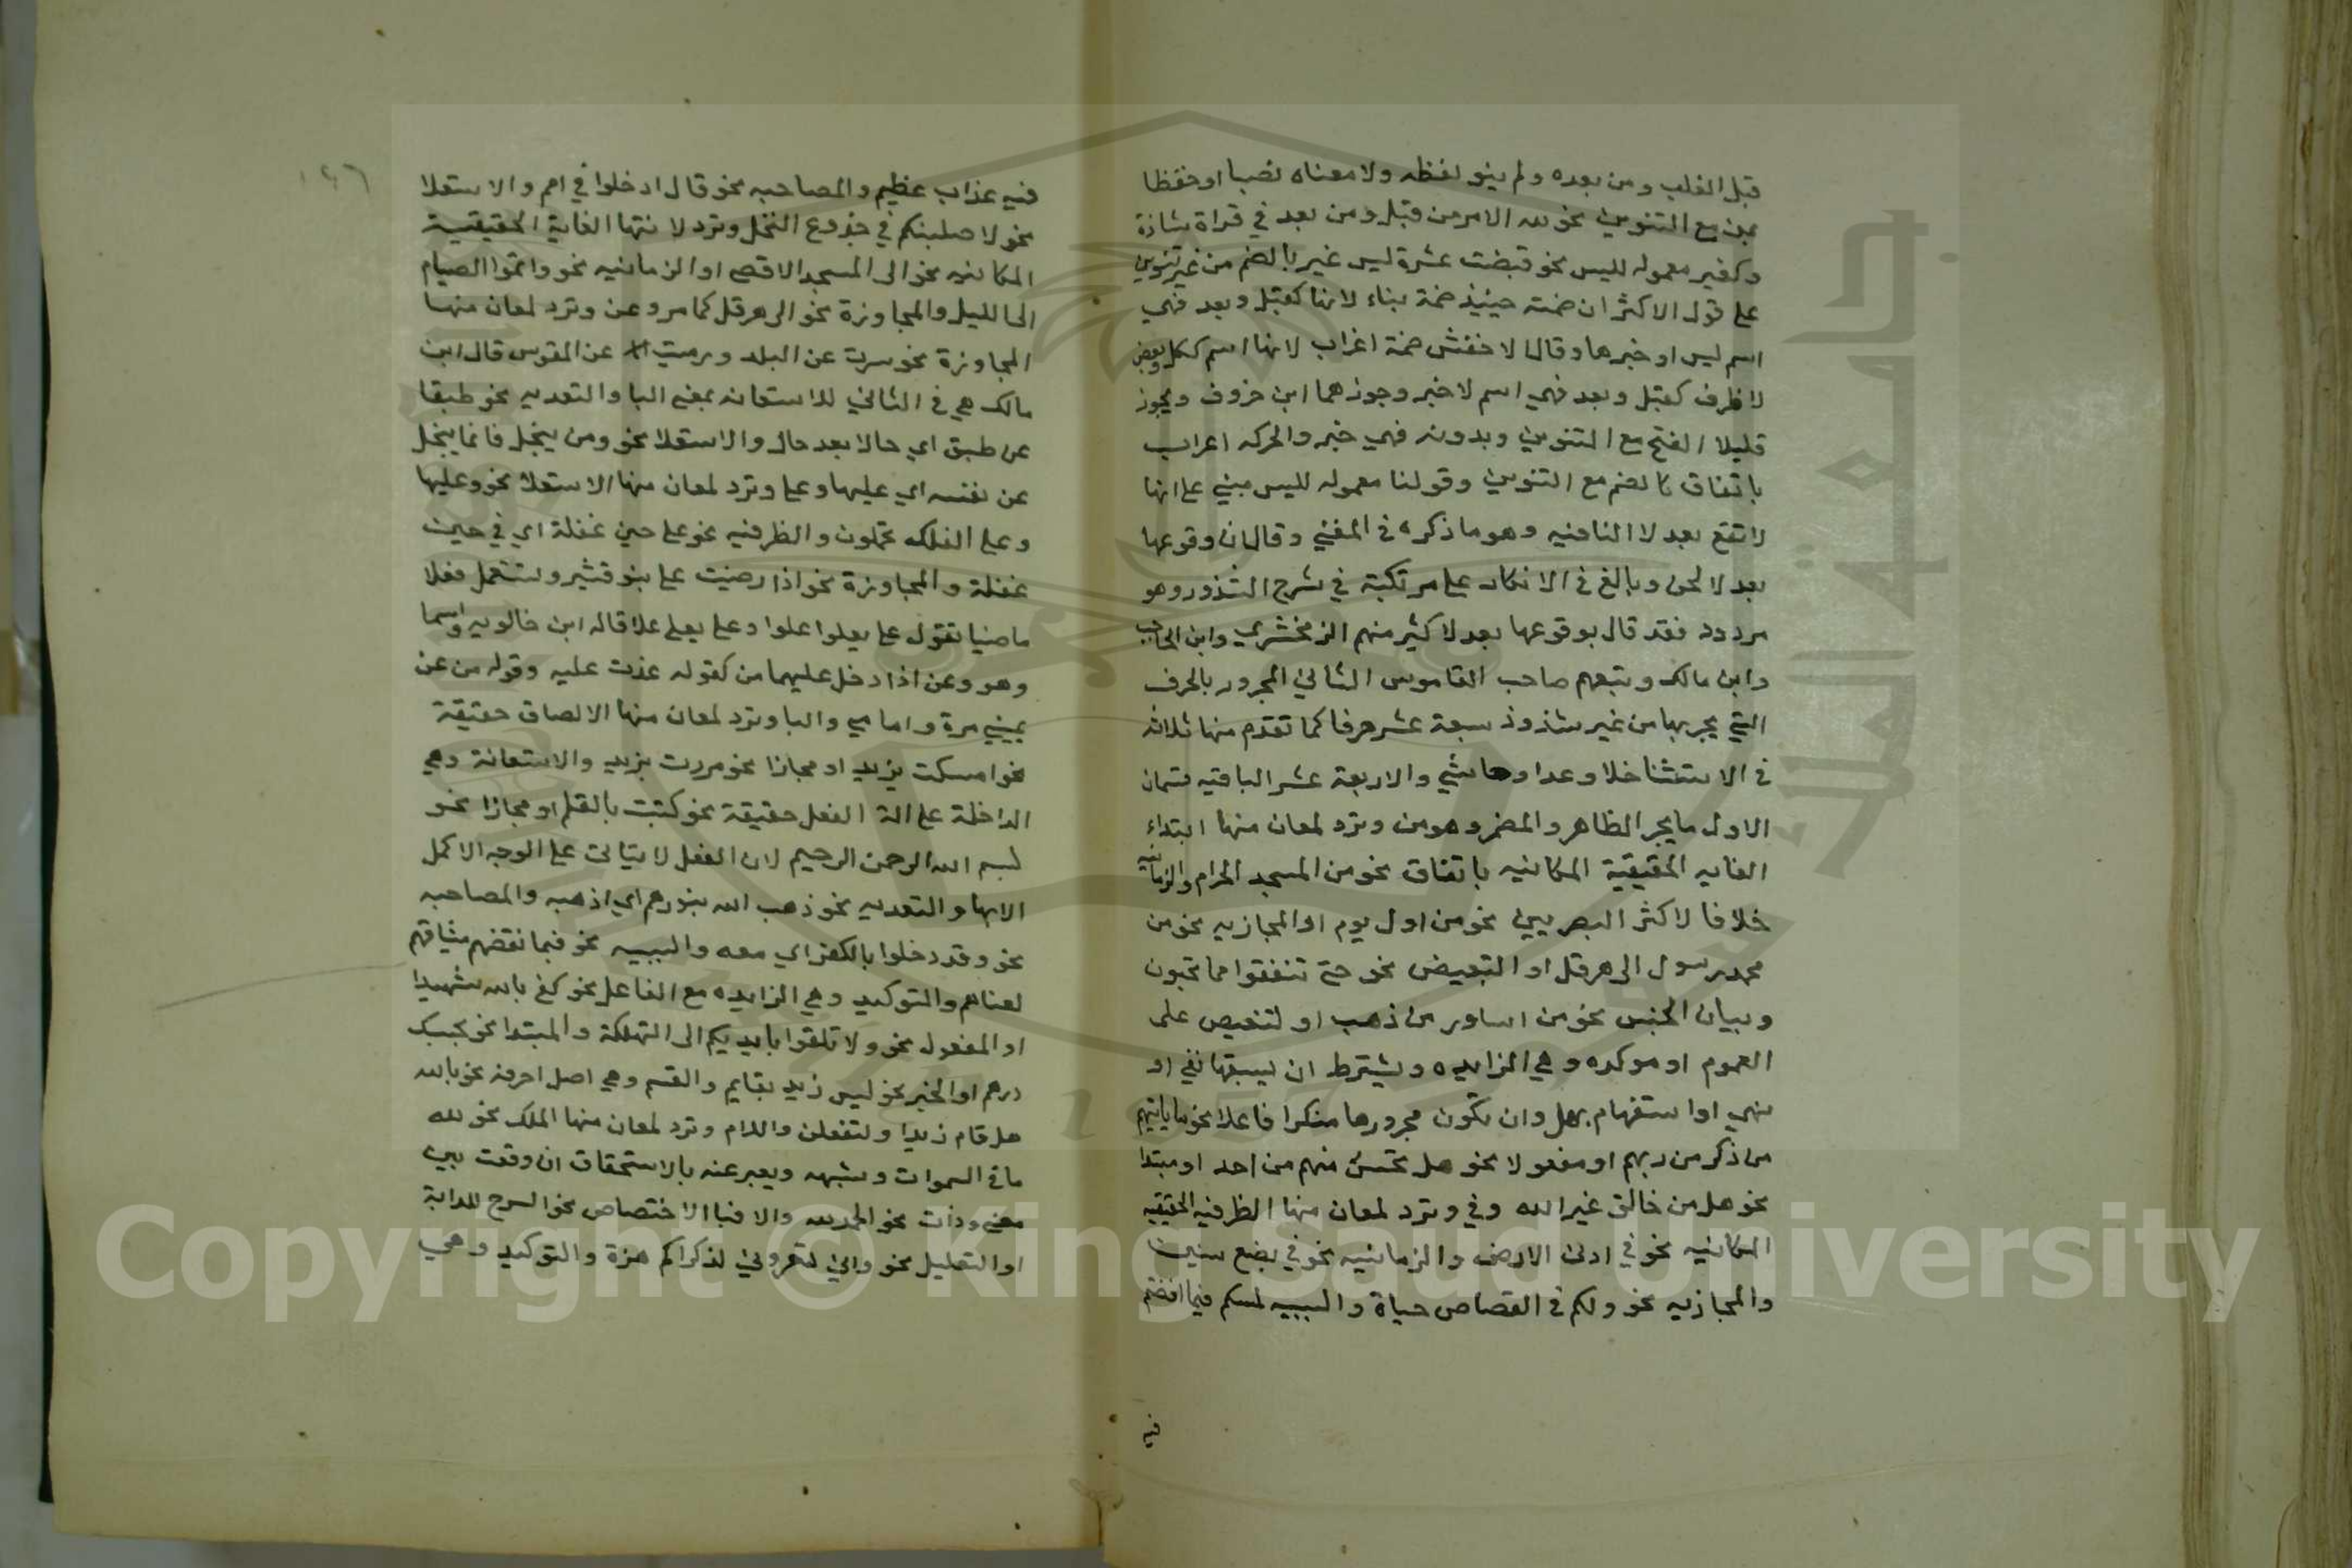 قبل الغلب ومن بعده ولم ينو لفظه ولا معناه نصبا او خفظا
بمن مع التنوين نحو لله الامر من قبل ومن بعد في قراة شاذة
وكغير معموله لليس نحو قبضت عشرة ليس غير بالضم من غير تنوين
على قول الاكثر ان ضمته حينيذ ضمة بناء لانها كقبل وبعد فهي
اسم ليس او خبرها وقال الاخفش ضمة اعراب لانها اسم ككل وبعض
لا ظرف كقبل وبعد فهي اسم لا خبر وجوزهما ابن خروف ويجوز
قليلا الفتح مع التنوين وبدونه فهي خبر والحركه اعراب
باتفاق كالضم مع التنوين وقولنا معموله لليس مبني على انها
لا تقع بعد لا النافيه وهو ما ذكره في المغني وقال ان وقوعها
بعد لا لحن وبالغ في الانكار على مرتكبة في شرح الشذور وهو
مردود فقد قال بوقوعها بعد لا كثير منهم الزمخشري وابن الحاجب
وابن مالك وتبعهم صاحب القاموس الثاني المجرور بالحرف
التي يجر بها من غير شذوذ سبعة عشر حرفا كما تقدم منها ثلاثه
في الاستثنا خلا وعدا وحاشي والاربعة عشر الباقيه قسمان
الاول ما يجر الظاهر والمضمر وهو من وترد لمعان منها ابتداء
الغايه الحقيقية المكانيه باتفاق نحو من المسجد الحرام والزمانيه
خلافا لاكثر البصريين نحو من اول يوم او المجازيه نحو من
محمد رسول الى هرقل او التبعيض نحو حتى تنفقوا مما تحبون
وبيان الجنس نحو من اساور من ذهب او لتنصيص على
العموم او موكده وهي الزايده ويشترط ان يسبقها نفي او
نهي او استفهام بهل وان تكون مجرورها منكرا فاعلا نحو ما ياتيهم
من ذكر من ربهم او مفعولا نحو هل تحس منهم من احد او مبتدا
نحو هل من خالق غير الله وفي وترد لمعان منها الظرفيه الحقيقيه
المكانيه نحو في ادنى الارض والزمانيه نحو في بضع سنين
والمجازيه نحو ولكم في القصاص حياة والسببيه لمسكم فيما افضتم
فيه
١٢٦
فيه عذاب عظيم والمصاحبه نحو قال ادخلوا في امم والاستعلا
نحو لاصلبنكم في جذوع النخل وترد لانتها الغاية الحقيقية
المكانيه نحو الى المسجد الاقصى او الزمانيه نحو واتموا الصيام
الى الليل والمجاوزة نحو الى هرقل كما مر وعن وترد لمعان منها
المجاوزة نحو سرت عن البلد ورميت عن القوس قال ابن
مالك هي في الثاني للاستعانه بمعنى البا والتعديه نحو طبقا
عن طبق اي حالا بعد حال والاستعلا نحو ومن يبخل فانما يبخل
عن نفسه اي عليها وعلى وترد لمعان منها الاستعلا نحو وعليها
وعلى الفلك تحملون والظرفيه نحو على حين غفلة اي في حين
غفلة والمجاوزة نحو اذا رضيت على بنو قشير وتستعمل فعلا
ماضيا تقول على يعلوا علوا وعلى يعلى علا قاله ابن خالويه واسما
وهو وعن اذا دخل عليهما من كقوله غدت عليه وقوله من عن
يميني مرة وامامي والبا وترد لمعان منها الالصاق حقيقة
نحو امسكت بزيد او مجازا نحو مررت بزيد والاستعانة وهي
الداخلة على الة الفعل حقيقة نحو كتبت بالقلم او مجازا نحو
بسم الله الرحمن الرحيم لان الفعل لا يتاتى على الوجه الاكمل
الا بها والتعديه نحو ذهب الله بنورهم اي اذهبه والمصاحبه
نحو وقد دخلوا بالكفر اي معه والسببيه نحو فبما نقضهم ميثاقهم
لعناهم والتوكيد وهي الزايده مع الفاعل نحو كفى بالله شهيدا
او المفعول نحو ولا تلقوا بايديكم الى التهلكة والمبتدا نحو بحسبك
درهم او الخبر نحو ليس زيد بقايم والقسم وهي اصل احرفه نحو بالله
هل قام زيدا ولتفعلن واللام وترد لمعان منها الملك نحو لله
ما في السموات وشبهه ويعبر عنه بالاستحقاق ان وقعت بين
معنى وذات نحو الحمد لله والا فبا الاختصاص نحو السرج للدابة
او التعليل نحو واني لتعروني لذكراكم هزة والتوكيد وهي
Copyright © King Saud University